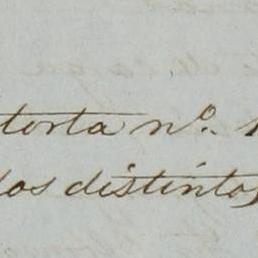 torta nº. 1
los distintos